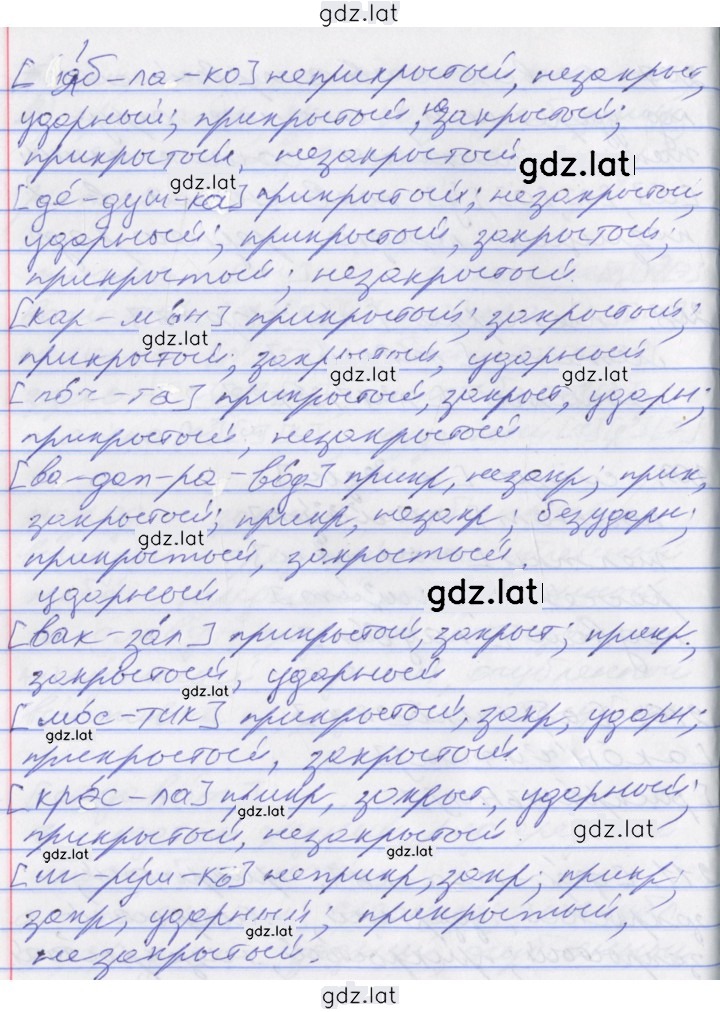 gdz.lat
[áб-ла-ко] неприкрытый, незакрыт,
ударный; прикрытый, незакрытый;
прикрытый, незакрытый
gdz.lat
gdz.lat
[де́-душ-ка] прикрытый; незакрытой,
ударный; прикрытый, закрытый;
прикрытый; незакрытый.
[кар-ма́н] прикрытый; закрытый;
gdz.lat
прикрытый; закрытый, ударный
gdz.lat gdz.lat
[по́ч-та] прикрытый, закрыт, ударн;
прикрытый, незакрытый
[ва-дап-ра-во́д] прикр, незакр; прик,
закрытый; прикр, незакр; безударн;
gdz.lat
прикрытый, закрытый.
ударный
gdz.lat
[вак-за́л] прикрытый, закрыт; прикр.
закрытый, ударный
gdz.lat
[мо́с-тик] прикрытый, закр, ударн;
gdz.lat
прикрытый, закрытый
[кре́с-ла] прикр, закрыт., ударный;
gdz.lat
прикрытый, незакрытый.
gdz.lat
gdz.lat gdz.lat
неприкр, закр; прикр;
закр, ударный; прикрытый,
gdz.lat
незакрытый.
gdz.lat